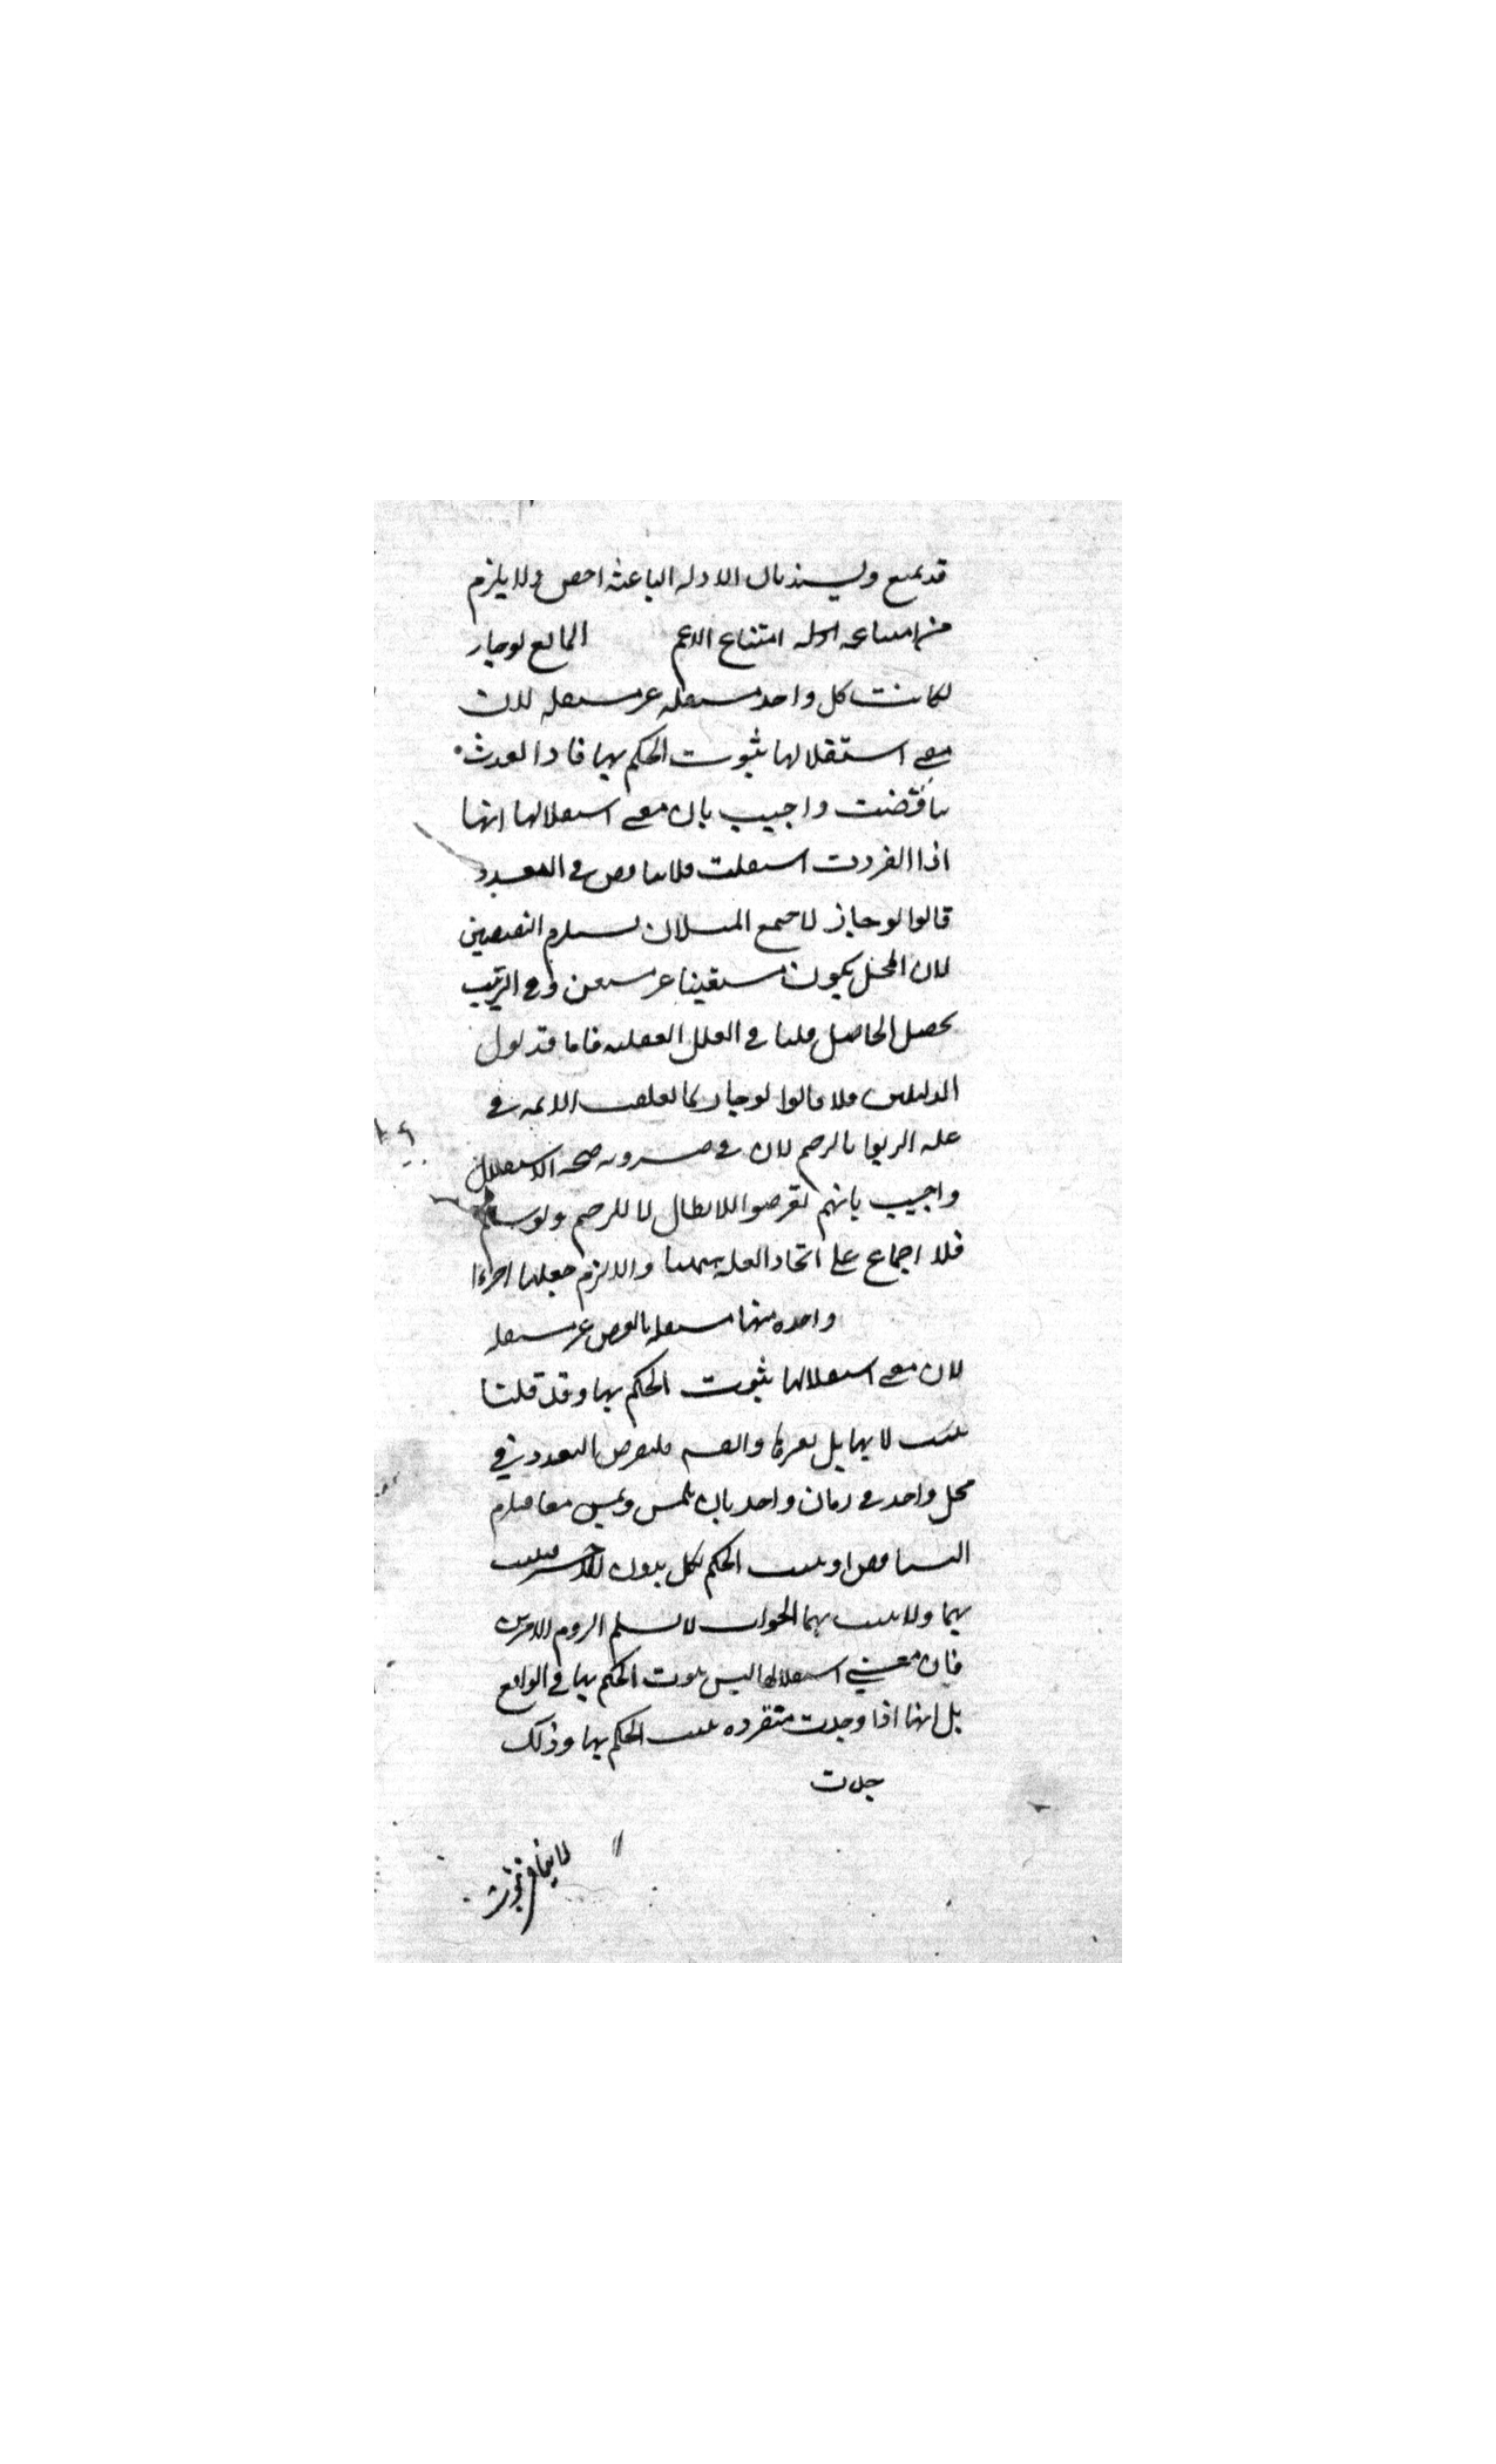 قد يمنع ويسند بان الادلة الباعثة اخص ولا يلزم
من امتناعه امتناع الاعم المانع لو جاز
لكانت كل واحد مستقلة غير مستقلة لان
معنى استقلالها ثبوت الحكم بها فاذا تعددت
تناقضت واجيب بان معنى استقلالها انها
اذا انفردت استقلت فلا تناقض في التعدد
قالوا لو جاز لاجتمع المثلان فيستلزم النقيضين
لان المحل يكون مستغنيا غير مستغن وفي الترتيب
تحصيل الحاصل قلنا في العلل العقلية فاما مدلول
الدليلين فلا قالوا لو جاز لما تعلق الائمة في
علة الربوا بالترجيح لان في ضرورته صحة الاستقلال
واجيب بانهم تعرضوا للابطال لا للترجيح ولو سلم
فلا اجماع على اتحاد العلة ههنا والا لزم جعلها اجزاء
واحدة منها مستقلة بالفرض غير مستقلة
لان معنى استقلالها ثبوت الحكم بها وقد قلنا
يثبت لا بها بل بغيرها وايضا فلنفرض التعدد في
محل واحد في زمان واحد بان لمس ومس معا فيلزم
التناقض او يثبت الحكم لكل بدون الاخر فيثبت
بهما ولا يثبت بهما الجواب لا نسلم لزوم الامرين
فان معنى استقلالها ليس ثبوت الحكم بها في الواقع
بل انها اذا وجدت منفردة ثبت الحكم بها وذلك
لا ينافي